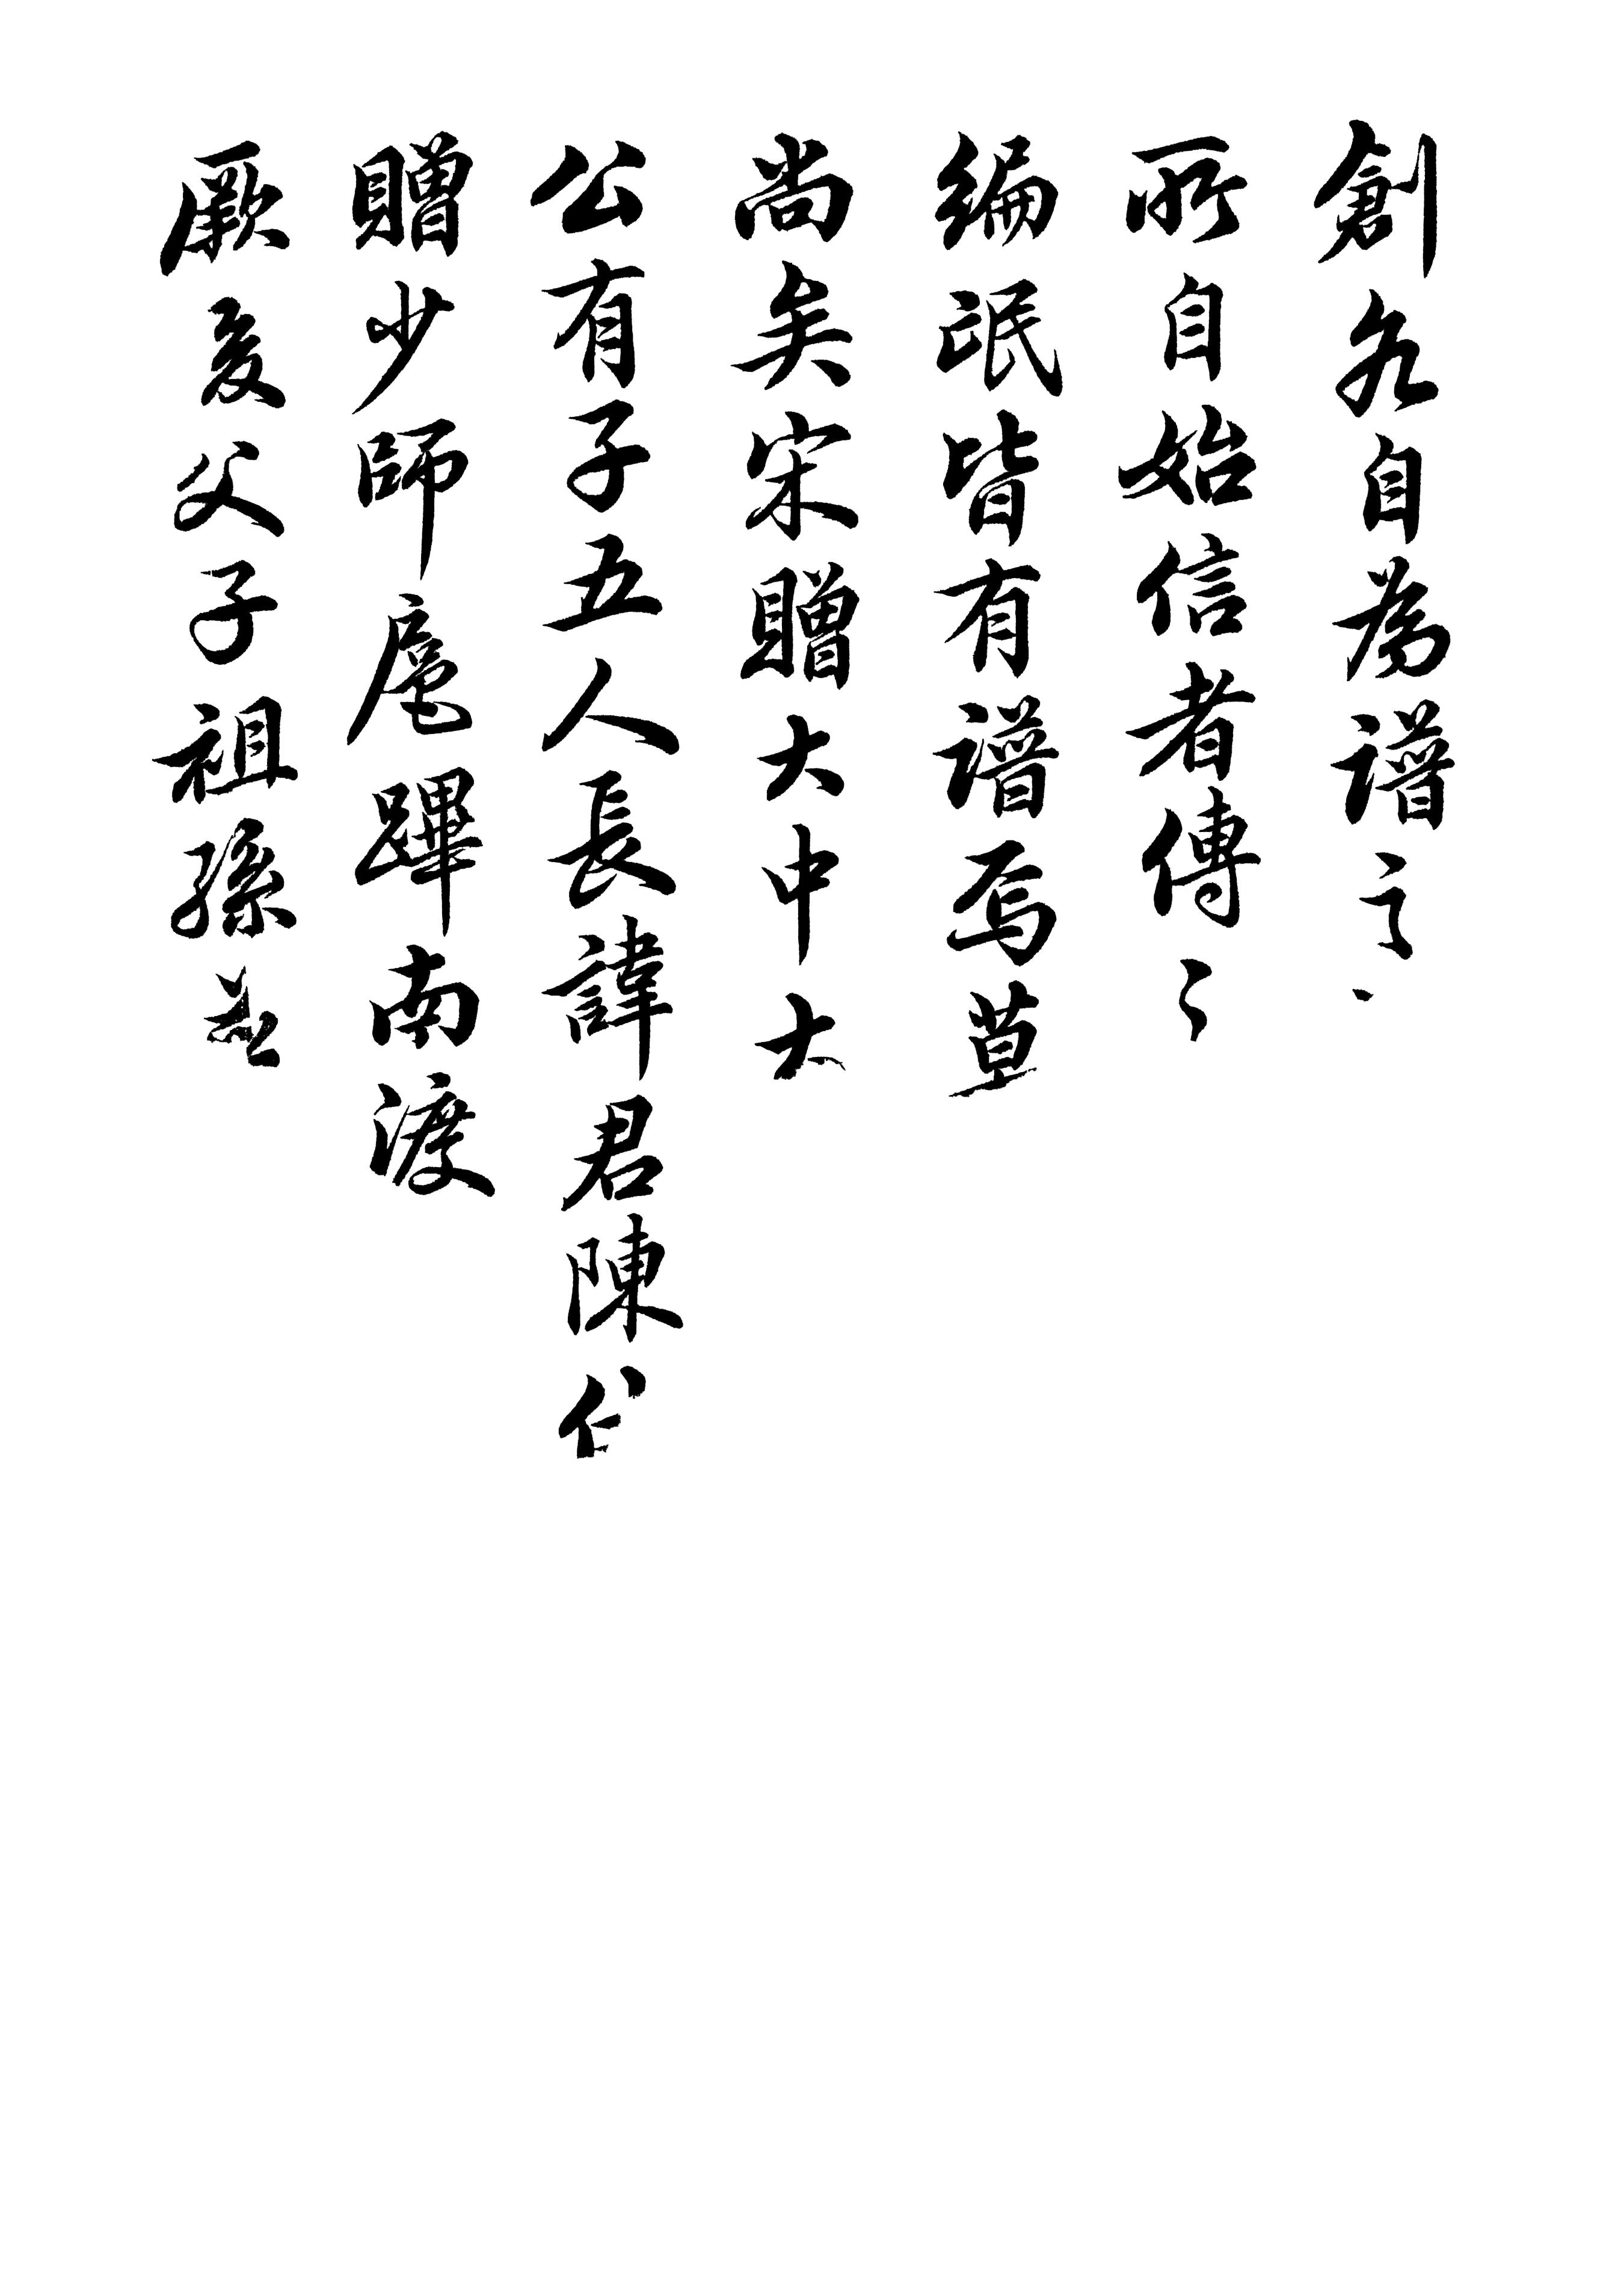 創為自為譜之
所自始信者傳〻
編氓皆有譜焉草
尚矣宋贈大中大
公有子五人長諱君陳
贈少師扈蹕南渡
厥後父子祖孫